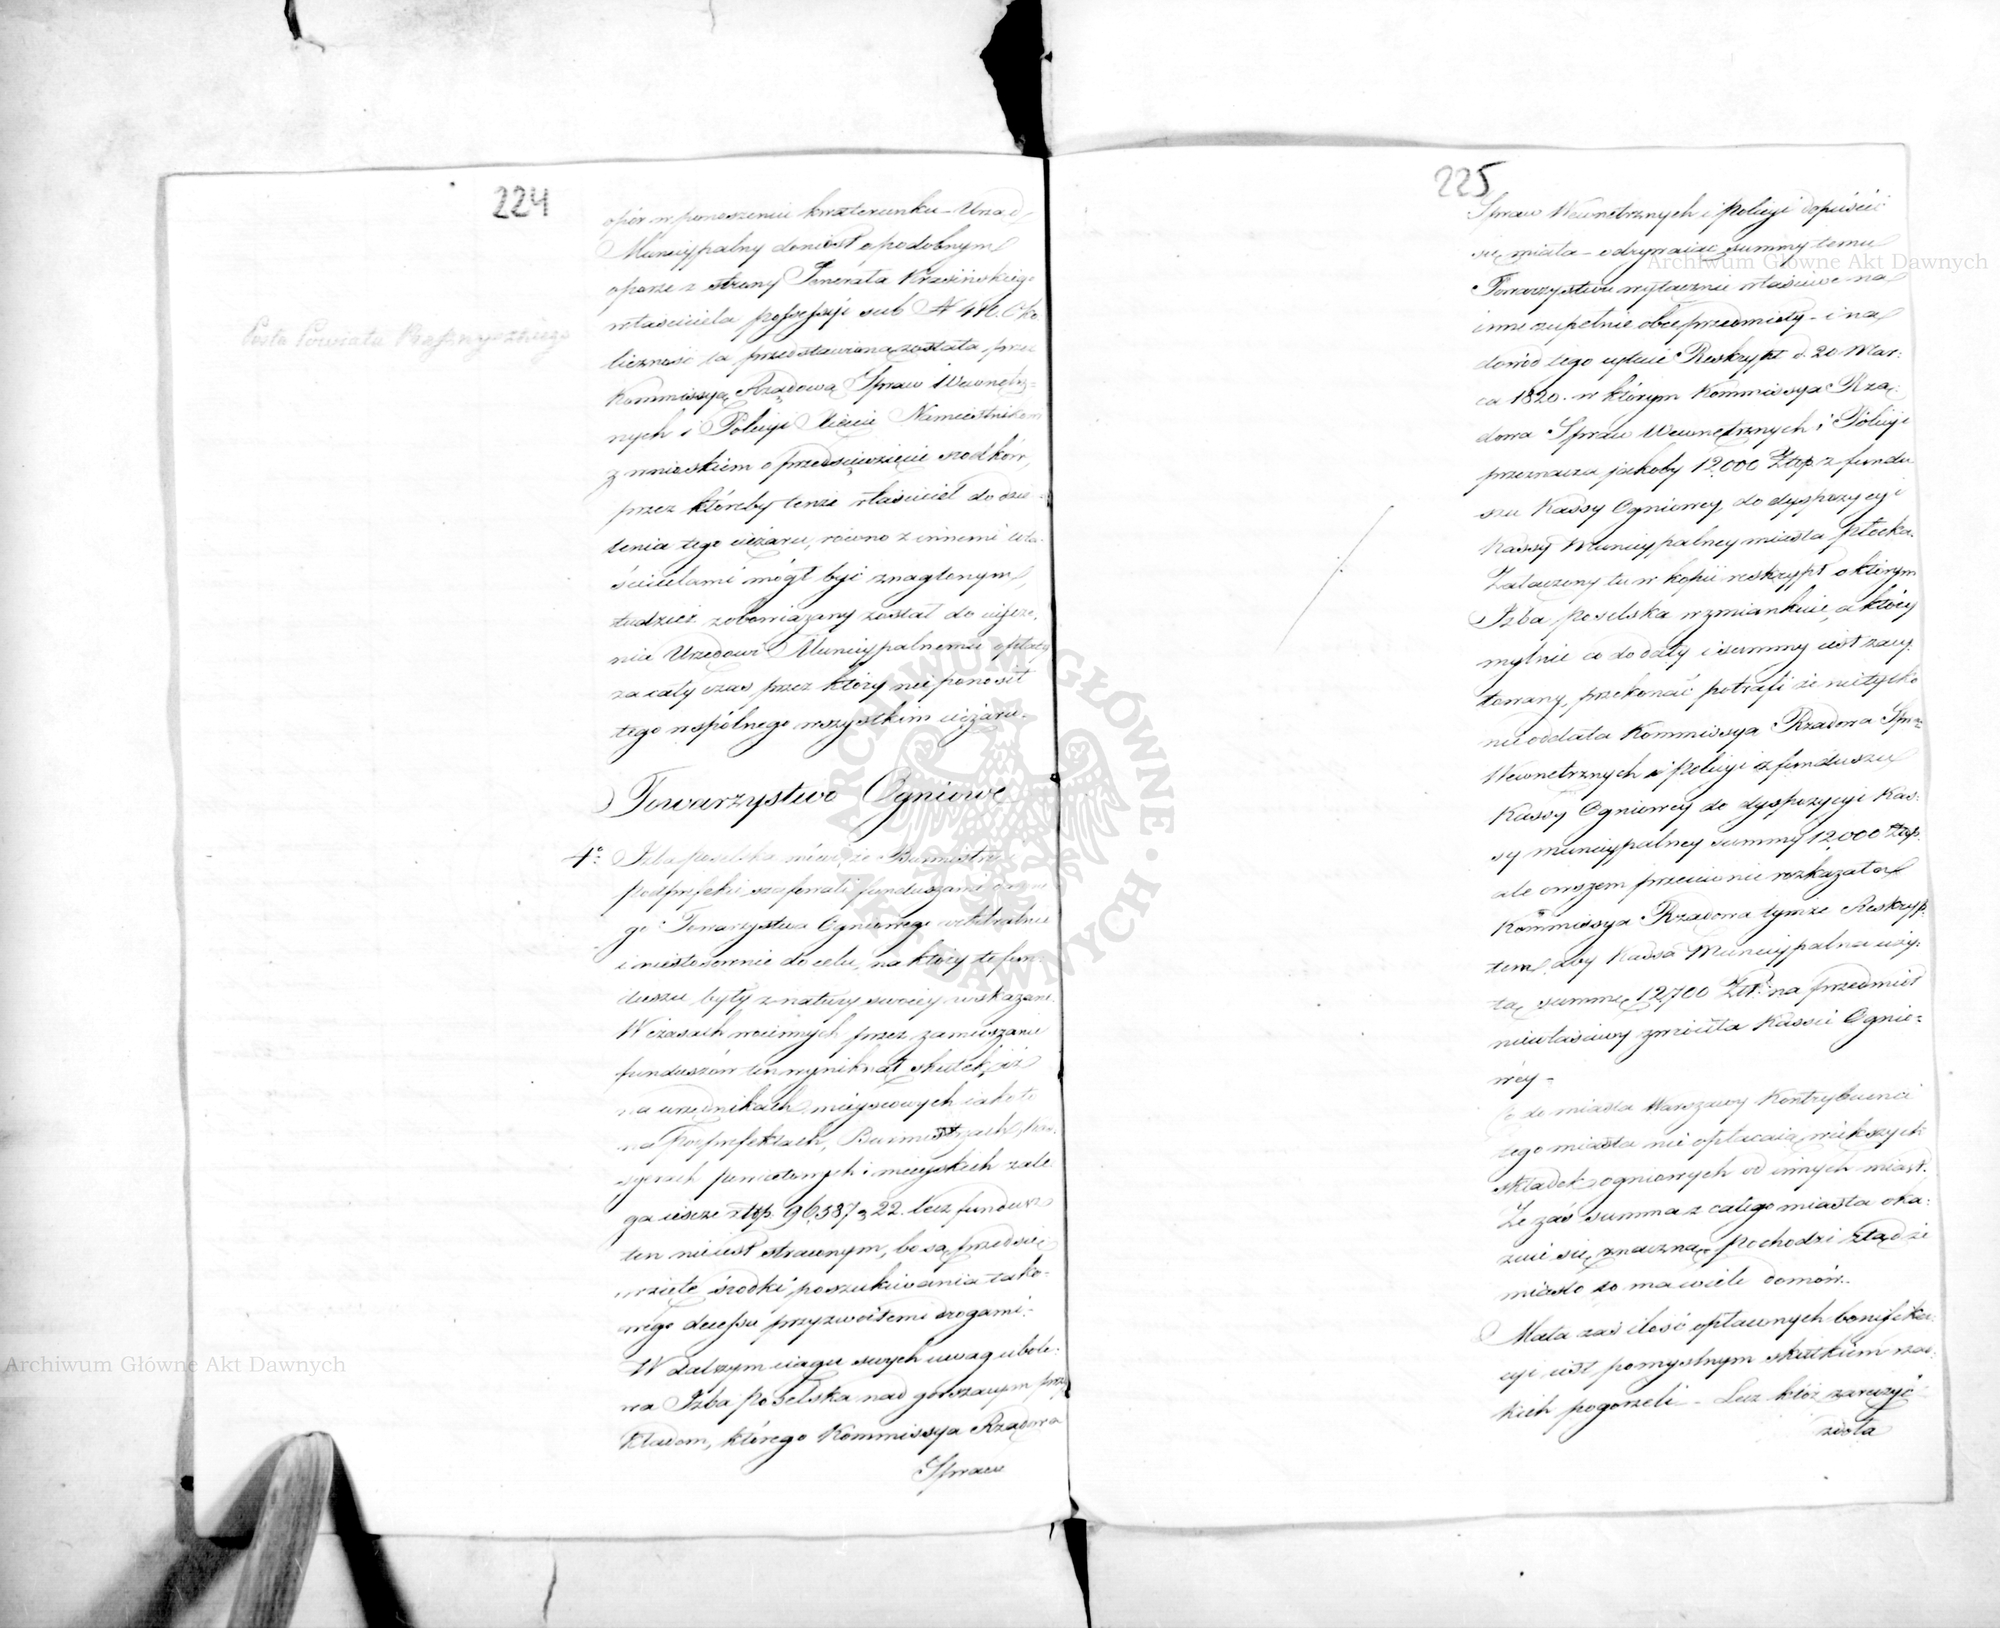 224
opór w ponoszeniu kwaterunku – Urząd
Municypalny doniósł o podobnym
oporze z strony Jenerała Krasińskiego
właściciela possessyi sub N 411. Oko
liczność ta przedstawiona została przez
Kommissyą Rządową Spraw Wewnętrz=
nych i Policyi Xięciu Namiestnikowi
z wnioskiem o przedsięwzięcie srodków,
przez któreby tenże właściciel do dzie-
lenia tego ciężaru, równo z innemi wła-
ścicielami mógł być znaglonym,
tudzież zobowiązany został do uiszcze,
nia Urzędowi Municypalnemu opłaty
za cały czas przez który nie ponosił
tego wspólnego wszystkim ciężaru.
Towarzystwo Ogniowe
4º Izba Poselska mówi, że Burmistrze i
Podprefekci szafowali funduszami
go Towarzystwa Ogniowego arbitralnie
i niestosownie do celu, na który te fun-
dusze były z natury swoiey wskazane.
W czasach woiennych przez zamieszanie
funduszów ten wyniknął skutek, iż
na urzędnikach mieyscowych iako to
na Podprefektach, Burmistrzach, Kas-
syerach powiatowych i mieyskich zale-
ga ieszcze złtp. 96,587 g 22. lecz fundusz
ten nie iest straconym, bo są przedsię
wzięte środki poszukiwania tako-
wego decessu przyzwoitemi drogami.
W dalszym ciągu swych uwag ubole-
wa Izba Poselska nad gorszącym przy
kładem, którego Kommissya Rządowa
Spraw
Posła Powiatu Przasnyszkiego
225
Spraw Wewnętrznych i Policyi dopuścić
się miała – odrywaiąc summy temu
Towarzystwu wyłącznie właściwe na
inne zupełnie obce przedmioty – i na
dowód tego cytuie Reskrypt d. 20 Mar-
ca 1820. w którym Kommissya Rzą-
dowa Spraw Wewnętrznych i Policyi
przeznacza jakoby 12,000 Złtp. z fundu
szu Kassy Ogniowey do dyspozycyi
Kassy Municypalney miasta Płocka.
Załączony tu w kopii reskrypt o którym
Izba Poselska wzmiankuie, a który
mylnie co do daty i summy iest zacy-
towany, przekonać potrafi że nie tylko
nie oddała Kommissya Rządowa Spraw
Wewnętrznych i Policyi z funduszu
Kassy Ogniowey do dyspozycyi Kas-
sy municypalney summy 12000 Złtp.
ale owszem przeciwnie rozkazała
Kommissya Rządowa tymże Reskryp-
tem, aby Kassa Municypalna uży-
tą summę 12,700 Złtp. na przedmiot
niewłaściwy zwróciła Kassie Ognio=
wey –
Co do miasta Warszawy Kontrybuenci
tego miasta nie opłacaią większych
składek ogniowych od innych miast.
Że zaś summa z całego miasta oka-
zuie się znaczną, pochodzi ztąd że
miasto to ma wiele domów.
Mała zaś ilość opłaconych bonifika-
cyi iest pomyślnym skutkiem rzad-
kich pogorzeli – Lecz któż zaręczyć
zdoła
Archiwum Główne Akt Dawnych
Archiwum Główne Akt Dawnych
ARCHIWUM GŁÓWNE AKT DAWNYCH